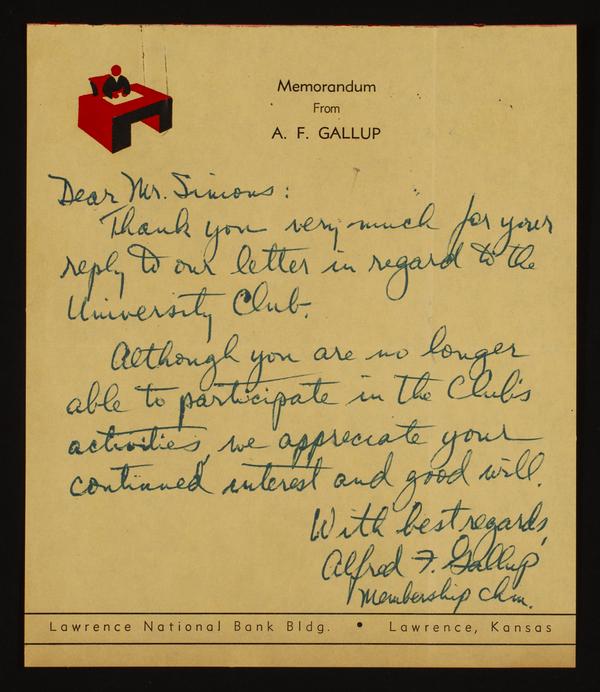 Memorandum
From
A. F. GALLUP
Dear Mr. Simons:
Thank you very much for your
reply to our letter in regard to the
University Club.
Although you are no longer
able to participate in the Club's
activities, we appreciate your
continued interest and good will.
With best regards,
Alfred F. Gallup
Membership Chm.
Lawrence National Bank Bldg. • Lawrence, Kansas